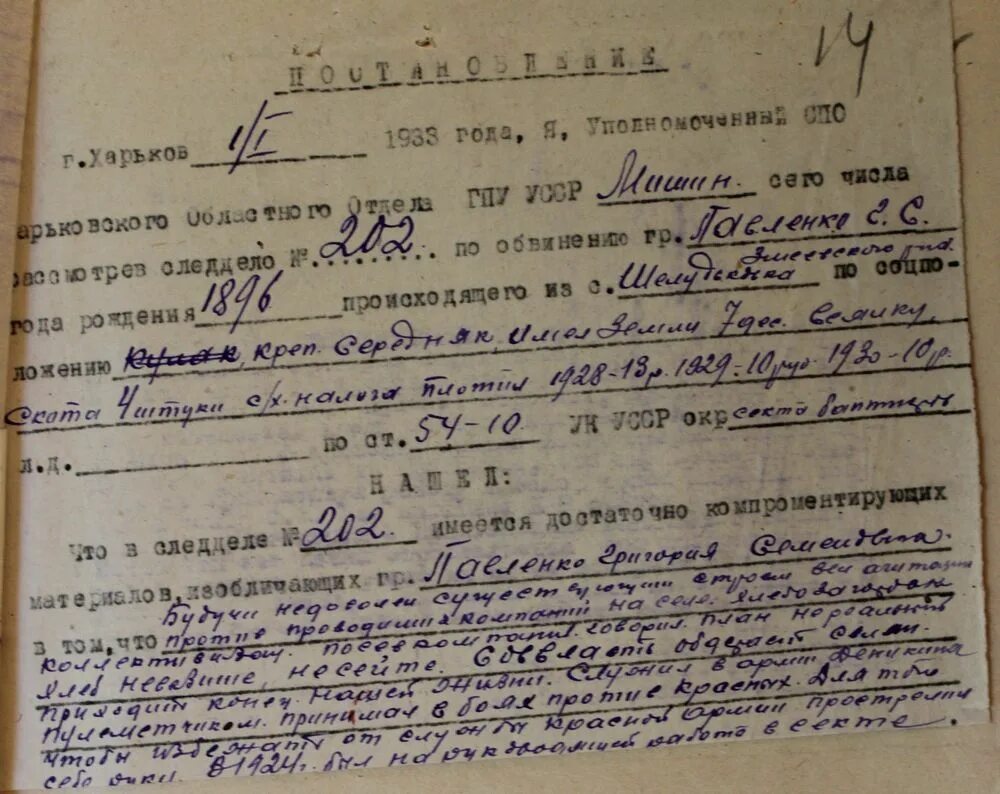 14
ПОСТАНОВЛЕНИЕ
г.Харьков 1/I 1933 года, Я, Уполномоченный СПО
арьковского Областного Отдела ГПУ УССР Мишин. сего числа
рассмотрев следдело №. 202 по обвинению гр. Павленко Г. С.
Змеевского р-на
года рождения 1896 происходящего из с. Шелудьковка по соцпо-
ложению кулак, креп. Середняк, имел земли 7 дес. всяику
скота 4 штуки с/х. налога плотил 1928-13 р. 1929-10 руб. 1930-10 р.
л.д. по ст. 54-10 УК УССР окр секта баптистов
НАШЕЛ:
Что в следделе № 202. имеется достаточно компроментирующих
материалов, изобличающих гр. Павленко Григория Семеновича.
Будучи недоволен существующим строем вел агитацию
в том, что против проводимых компаний на селе. Хлебозаготовок
коллективизац. посевкомпании. говорил план нереальный
хлеб невозите, не сейте. Соввласть обдерает селян.
приходит конец нашей жизни. Служил в армии Деникина
пулеметчиком. принимал в боях против красных. Для того
чтобы избежать от службы красной армии прострелил
себе руки. В 1924г. был на руководящей работе в секте.